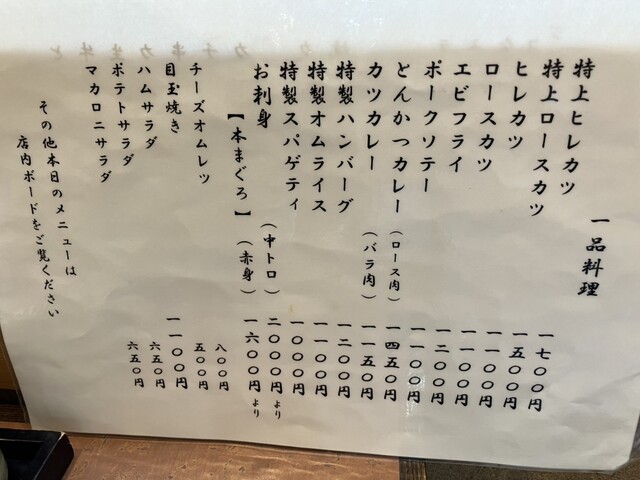 一品料理
特上ヒレカツ 一七〇〇円
特上ロースカツ 一五〇〇円
ヒレカツ 一一〇〇円
ロースカツ 一一〇〇円
エビフライ 一二〇〇円
ポークソテー 一一〇〇円
とんかつカレー(ロース肉) 一四五〇円
カツカレー(バラ肉) 一一五〇円
特製ハンバーグ 一二〇〇円
特製オムライス 一一〇〇円
特製スパゲティ 一〇〇〇円
お刺身(中トロ) 二〇〇〇円より
【本まぐろ】(赤身) 一六〇〇円より
チーズオムレツ 八〇〇円
目玉焼き 五〇〇円
ハムサラダ 一一〇〇円
ポテトサラダ 六五〇円
マカロニサラダ 六五〇円
その他本日のメニューは
店内ボードをご覧ください